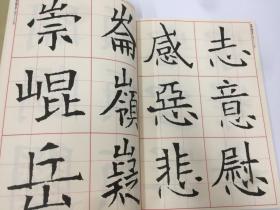 志意慰
感惡悲
崙嶺嶷
崇崐岳